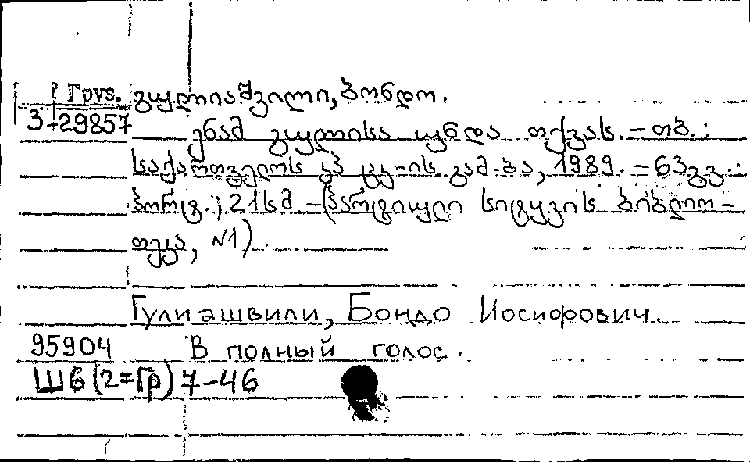 Груз. გულიაშვილი, ბონდო.
3-29857
ენამ გულისა უნდა თქვას. – თბ.:
საქართველოს კპ ცკ-ის გამ-ბა, 1989. – 63გვ.:
პორტ.; 21სმ – (პარტიული სიტყვის ბიბლიო-
თეკა, №1)
Гулиашвили, Бондо Иосифович.
95904 В полный голос.
Шб(2=Гр)7-46